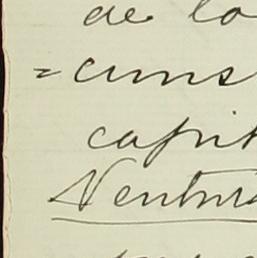 de lo
=cuns
capit
Ventur